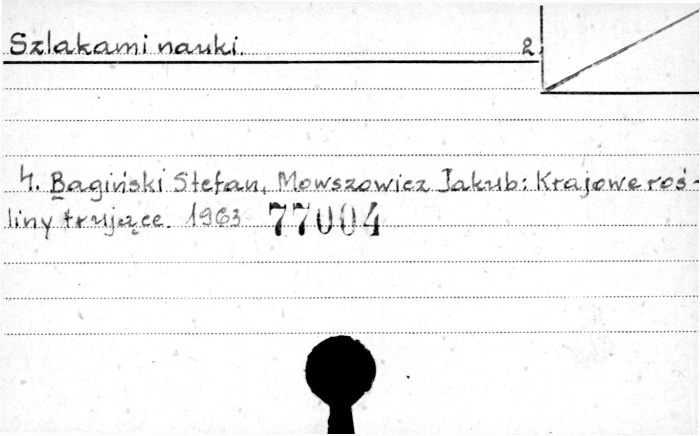 Szlakami nauki. 2.
4. Bagiński Stefan, Mowszowicz Jakub: Krajowe roś-
liny trujące. 1963 77004